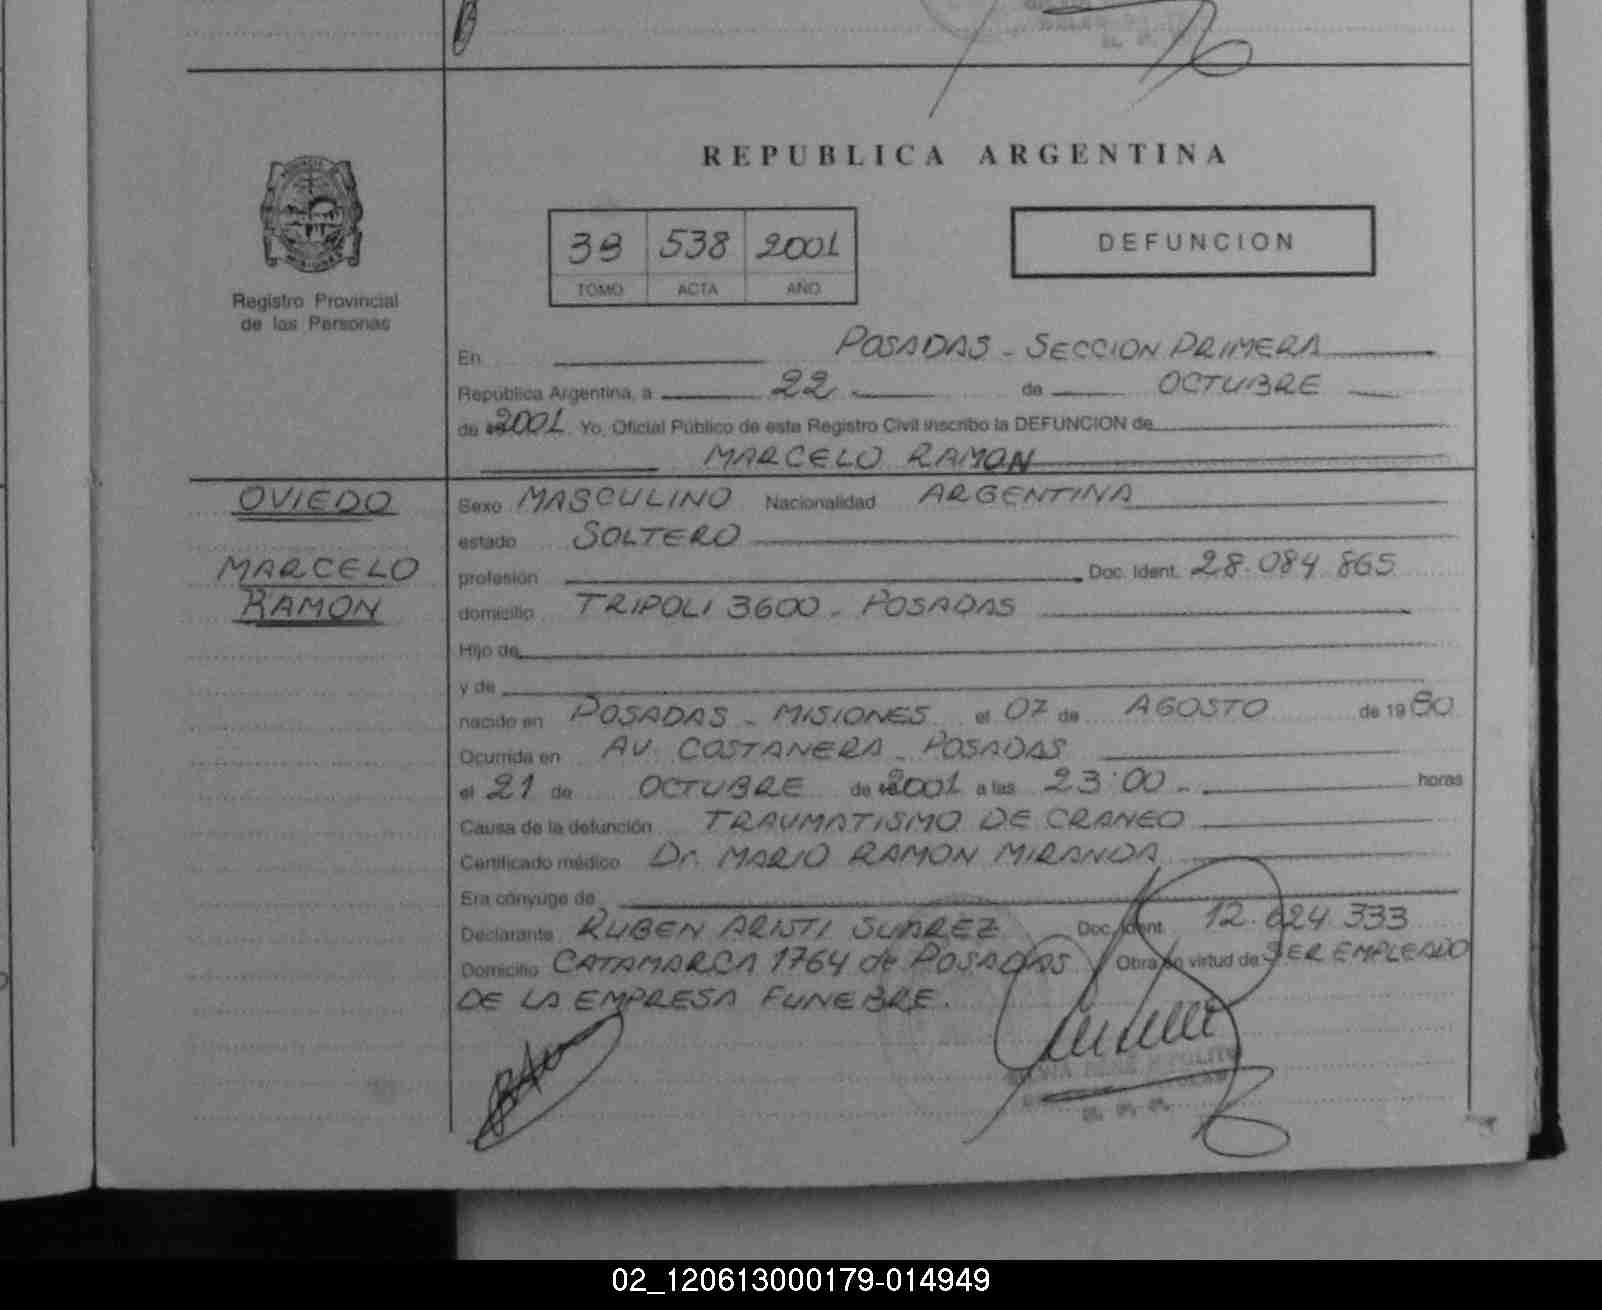 REPUBLICA ARGENTINA
38 538 2001
TOMO ACTA AÑO
DEFUNCION
Registro Provincial
de las Personas
En POSADAS - SECCION PRIMERA
República Argentina, a 22 de OCTUBRE
de 2001 Yo, Oficial Público de este Registro Civil inscribo la DEFUNCION de
MARCELO RAMON
OVIEDO
MARCELO
RAMON
Sexo MASCULINO Nacionalidad ARGENTINA
estado SOLTERO
profesión Doc. Ident. 28.084.865
domicilio TRIPOLI 3600 - POSADAS
Hijo de
y de
nacido en POSADAS - MISIONES el 07 de AGOSTO de 1980
Ocurrida en AV. COSTANERA - POSADAS
el 21 de OCTUBRE de 2001 a las 23:00 - horas
Causa de la defunción TRAUMATISMO DE CRANEO
Certificado médico Dr. MARIO RAMON MIRANDA
Era cónyuge de
Declarante RUBEN ARISTI SUAREZ Doc. Ident. 12.624.333
Domicilio CATAMARCA 1764 de POSADAS Obra en virtud de SER EMPLEADO
DE LA EMPRESA FUNEBRE.
02_120613000179-014949